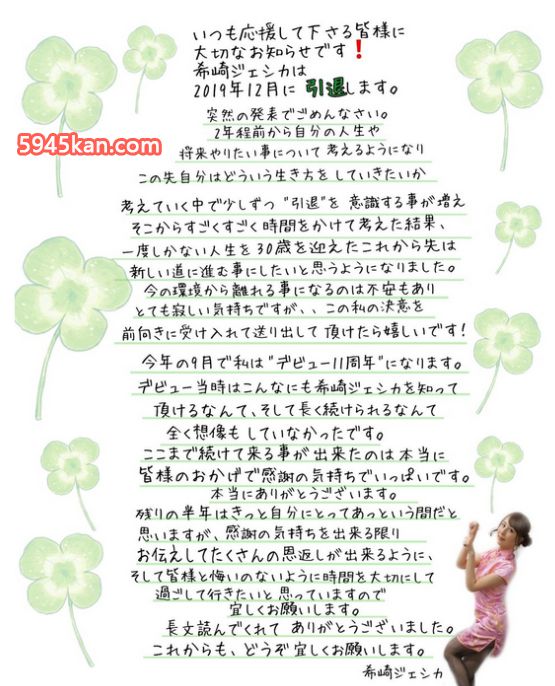 いつも応援して下さる皆様に
大切なお知らせです❗
希崎ジェシカは
2019年12月に 引退します。
突然の発表でごめんなさい。
5945kan.com
2年程前から自分の人生や
将来やりたい事について考えるようになり
この先自分はどういう生き方をしていきたいか
考えていく中で少しずつ"引退"を意識する事が増え
そこからすごくすごく時間をかけて考えた結果、
一度しかない人生を30歳を迎えたこれから先は
新しい道に進む事にしたいと思うようになりました。
今の環境から離れる事になるのは不安もあり
とても寂しい気持ちですが、、この私の決意を
前向きに受け入れて送り出して頂けたら嬉しいです!
今年の9月で私は"デビュー11周年"になります。
デビュー当時はこんなにも希崎ジェシカを知って
頂けるなんて、そして長く続けられるなんて
全く想像もしていなかったです。
ここまで続けて来る事が出来たのは本当に
皆様のおかげで感謝の気持ちでいっぱいです。
本当にありがとうございます。
残りの半年はきっと自分にとってあっという間だと
思いますが、感謝の気持ちを出来る限り
お伝えしてたくさんの恩返しが出来るように、
そして皆様と悔いのないように時間を大切にして
過ごして行きたいと思っていますので
宜しくお願いします。
長文読んでくれて ありがとうございました。
これからも、どうぞ宜しくお願いします。
希崎ジェシカ